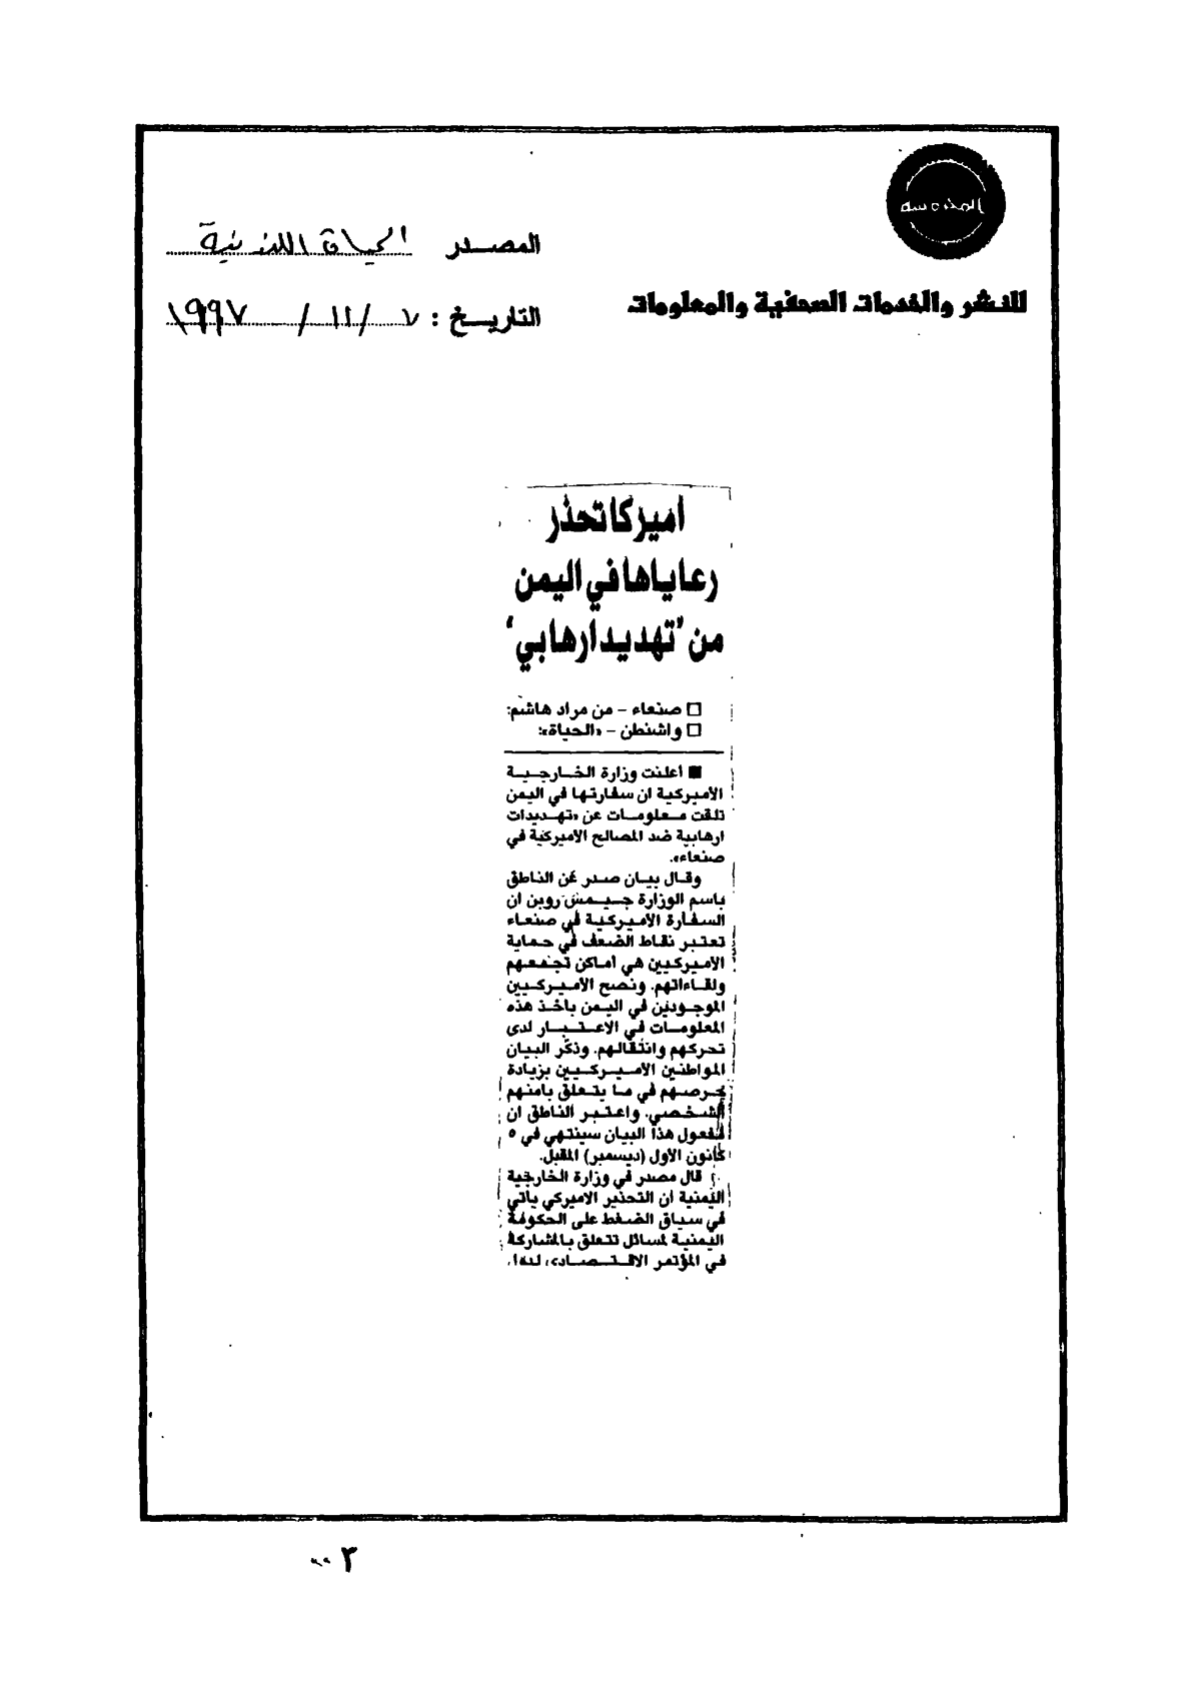 المصدر الحياة اللندنية
للنشر والخدمات الصحفية والمعلومات
التاريخ : ٧ / ١١ / ١٩٩٧
اميركا تحذر
رعاياها في اليمن
من "تهديد ارهابي"
□ صنعاء – من مراد هاشم:
□ واشنطن – «الحياة»:
■ أعلنت وزارة الخارجية
الأميركية ان سفارتها في اليمن
تلقت معلومات عن «تهديدات
ارهابية ضد المصالح الاميركية في
صنعاء».
وقال بيان صدر عن الناطق
باسم الوزارة جيمس روبن ان
السفارة الاميركية في صنعاء
تعتبر نقاط الضعف في حماية
الاميركيين هي أماكن تجمعهم
ولقاءاتهم. ونصح الأميركيين
الموجودين في اليمن بأخذ هذه
المعلومات في الاعتبار لدى
تحركهم وانتقالهم. وذكّر البيان
المواطنين الأميركيين بزيادة
حرصهم في ما يتعلق بأمنهم
الشخصي. واعتبر الناطق ان
مفعول هذا البيان سينتهي في ٥
كانون الأول (ديسمبر) المقبل.
قال مصدر في وزارة الخارجية
اليمنية ان التحذير الاميركي يأتي
في سياق الضغط على الحكومة
اليمنية لمسائل تتعلق بالمشاركة
في المؤتمر الاقتصادي